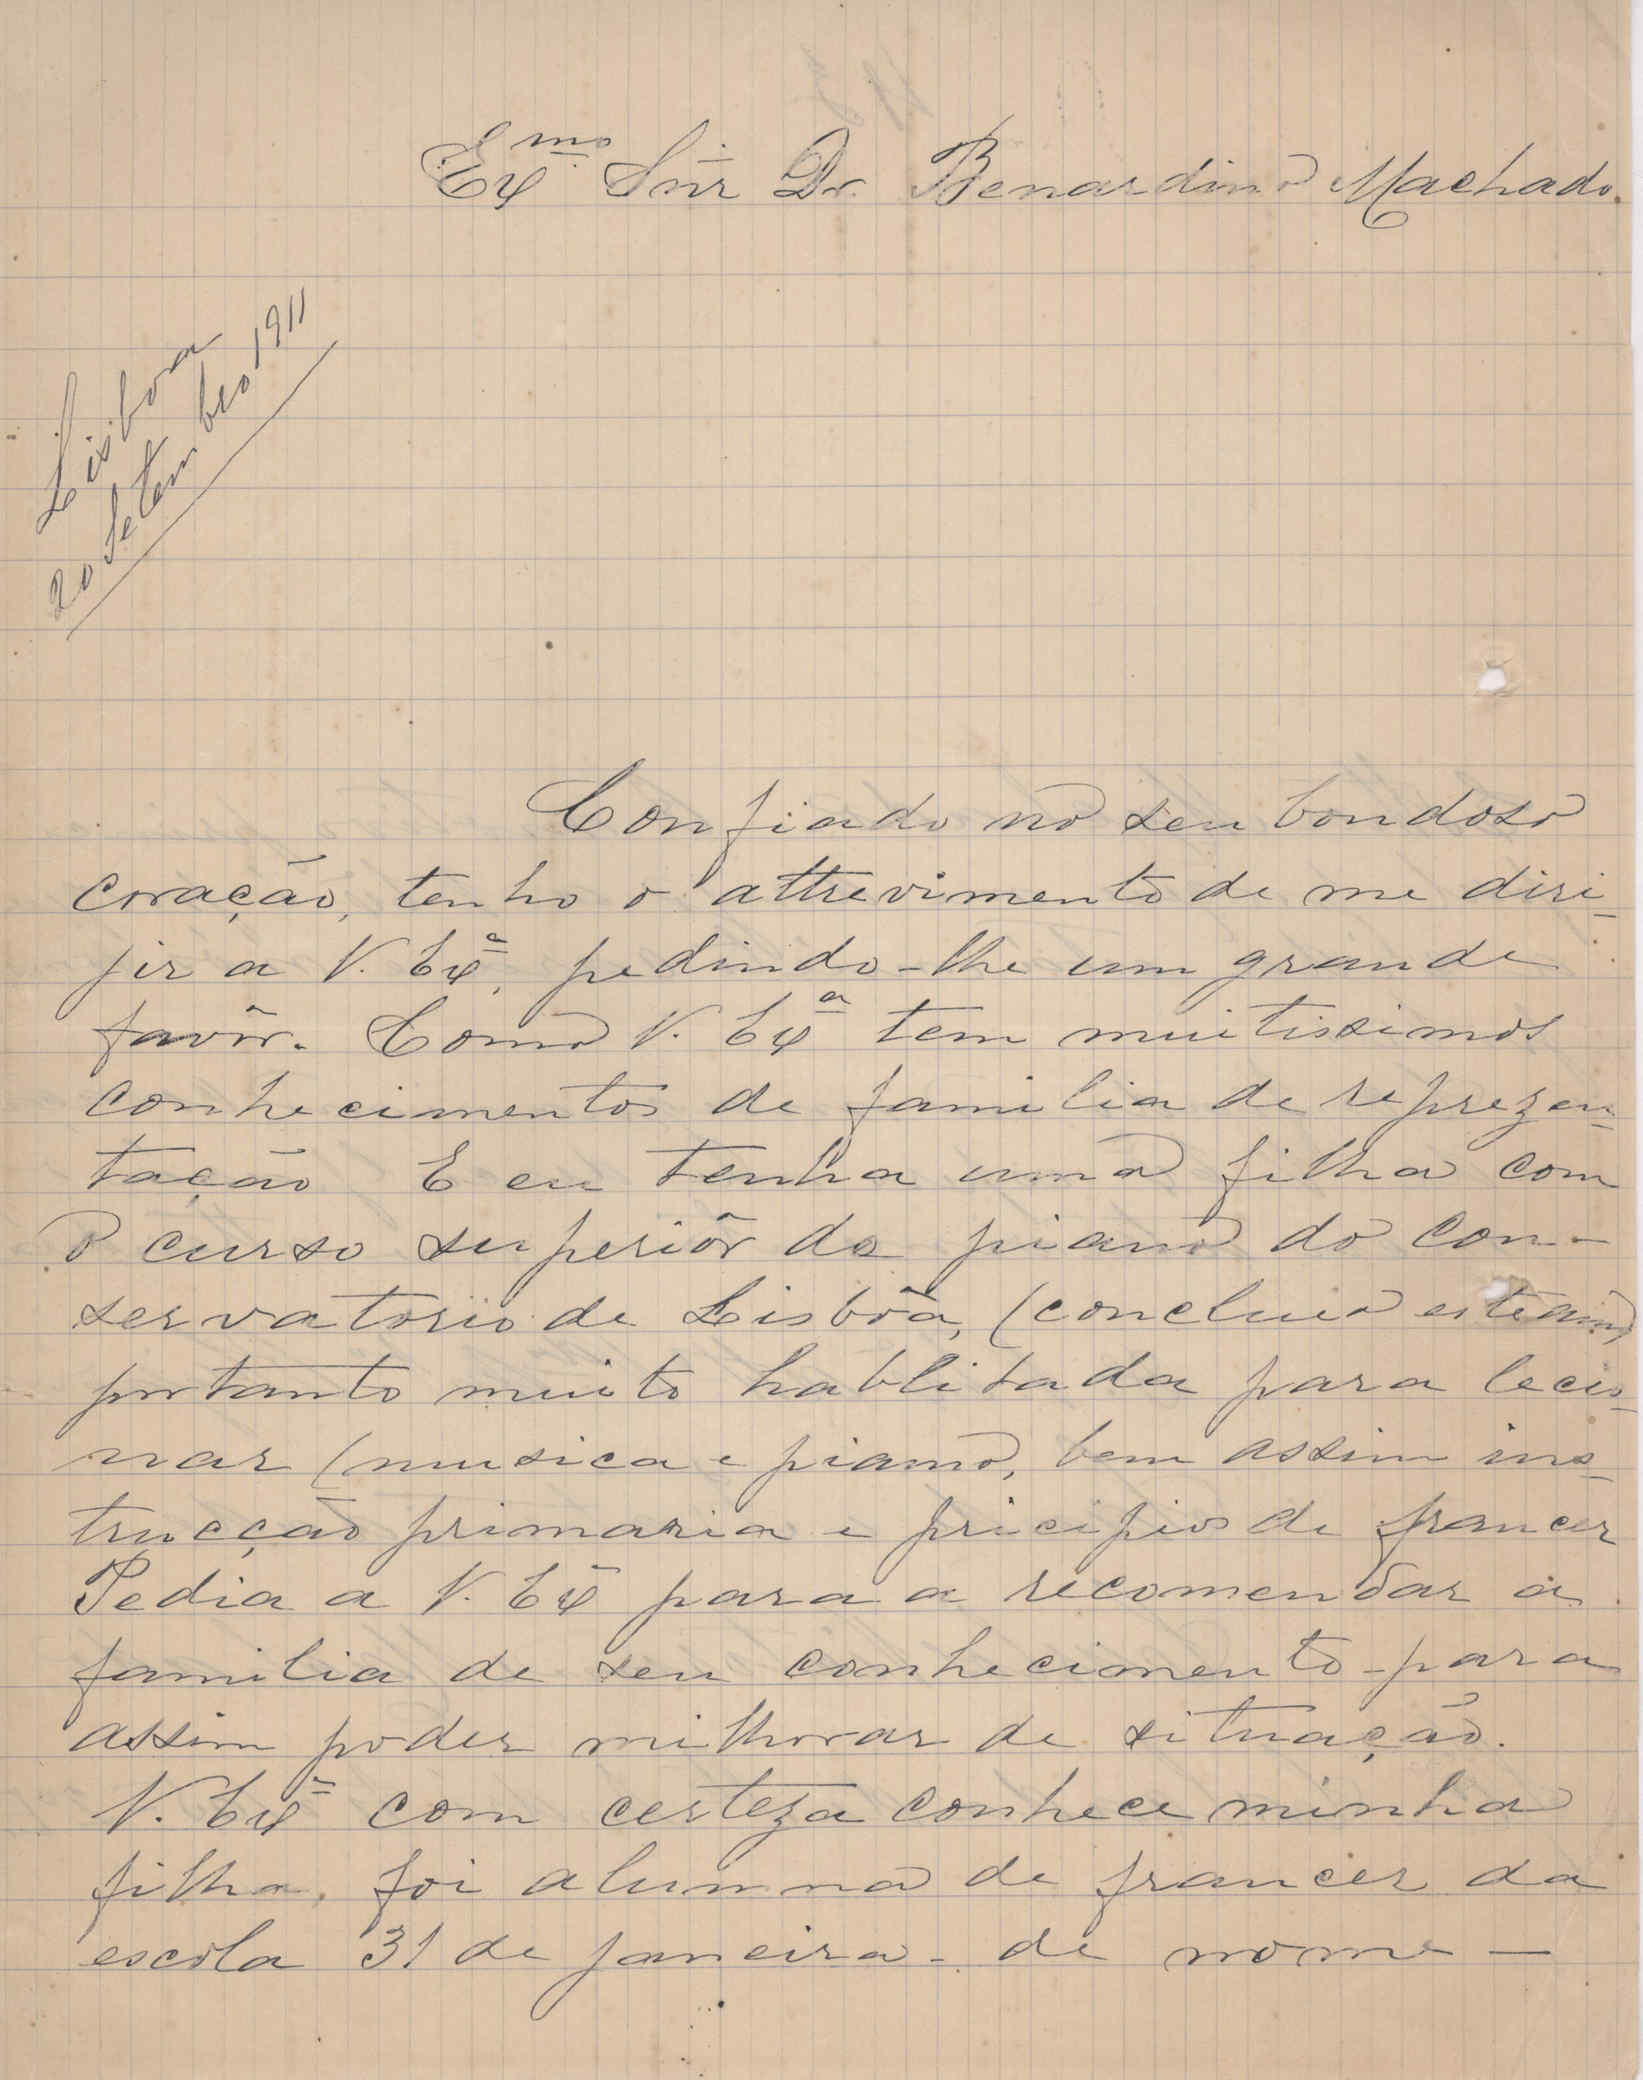 Exmo Snr Dr. Benardino Machado.
Lisboa
20 Setembro 1911
Confiado no seu bondoso
coração, tenho o attrevimento de me diri-
jir a V. Exª, pedindo-lhe um grande
favôr. Como V. Exª tem muitissimos
conhecimentos de familia de reprezen-
tação E eu tenha uma filha com
o curso superiôr de piano do con-
servatorio de Lisbôa, (concluio este anno)
portanto muito hablitada para lecio-
nar (musica e piano, bem assim ins-
trucção primaria e pricipios de francez
Pedia a V. Exª para a recomendar a
familia de seu conhecimento - para
assim poder milhorar de situação.
V. Exª com certeza conhece minha
filha, foi alumna de francez da
escola 31 de janeiro - de nome -